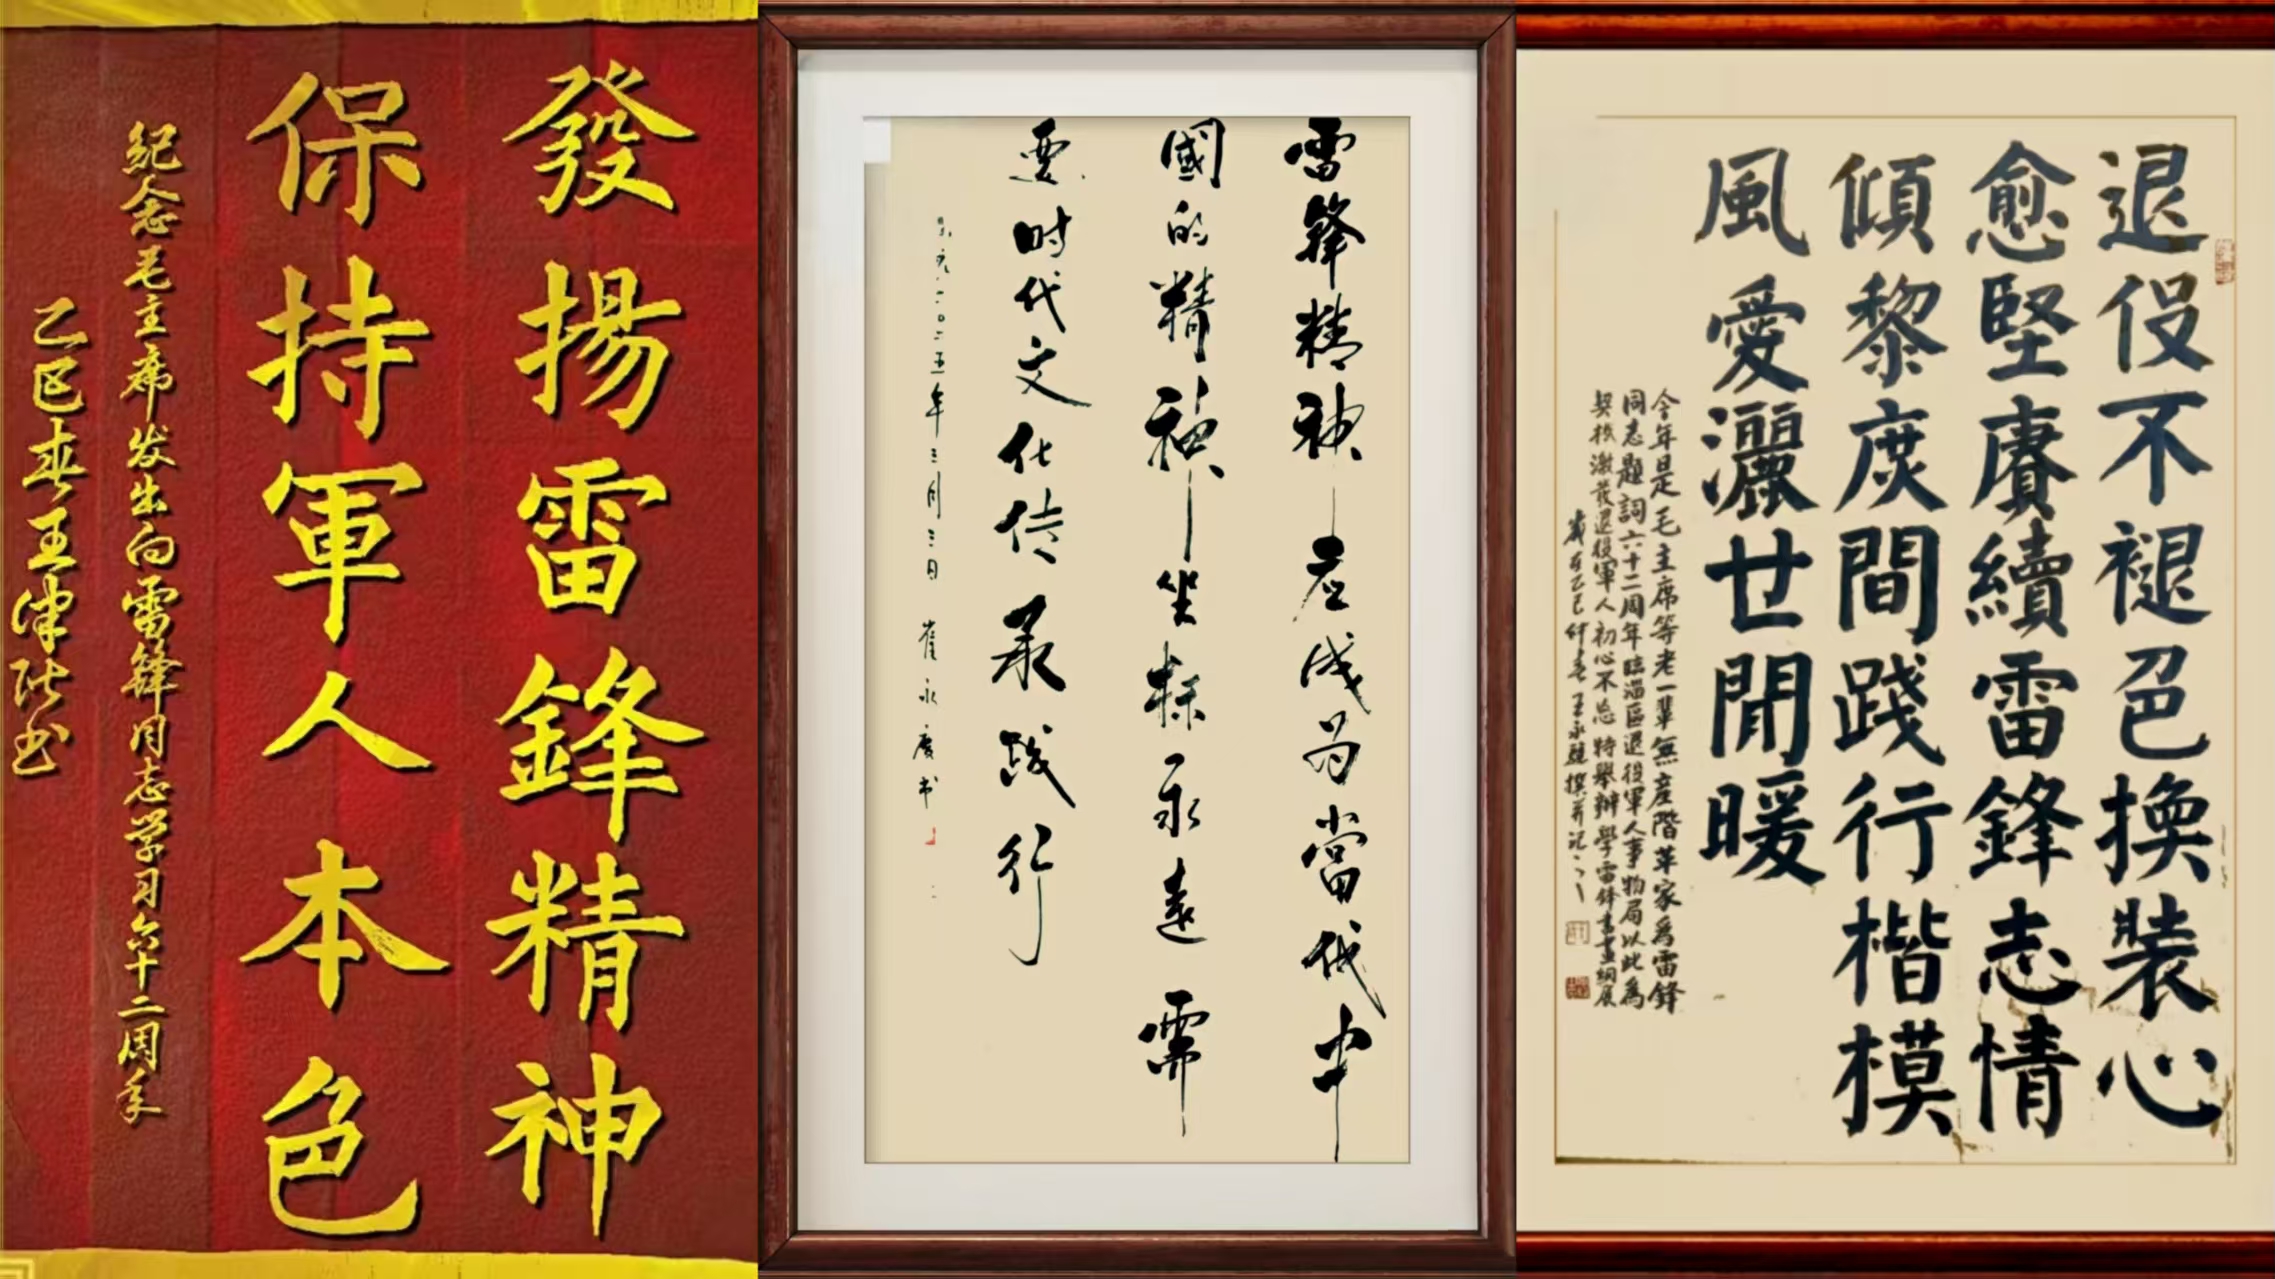 發揚雷鋒精神
保持軍人本色
纪念毛主席发出向雷锋同志学习六十二周年
乙巳春王津书
雷锋精神应成为當代中
國的精神坐标永远需
要时代文化传承践行
二〇二五年三月三日 崔永庆书
退役不褪色換裝心
愈堅賡續雷鋒志情
傾黎庶間踐行楷模
風愛灑世間暖
今年是毛主席等老一輩無產階革家為雷鋒
同志題詞六十二周年臨淄區退役軍人事物局以此為
契機激發退役軍人初心不忘特舉辦學雷鋒書畫網展
歲在乙巳仲春王永撰并记